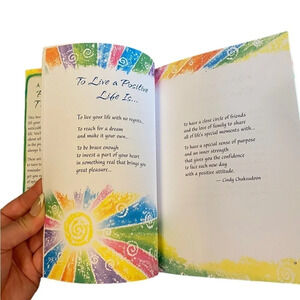 To Live a Positive
Life Is...
To live your life with no regrets...
To reach for a dream
and make it your own...
To be brave enough
to invest a part of your heart
in something real that brings you
great pleasure...
to have a close circle of friends
and the love of family to share
all of life's special moments with...
To have a special sense of purpose
and an inner strength
that gives you the confidence
to face each new day
with a positive attitude.